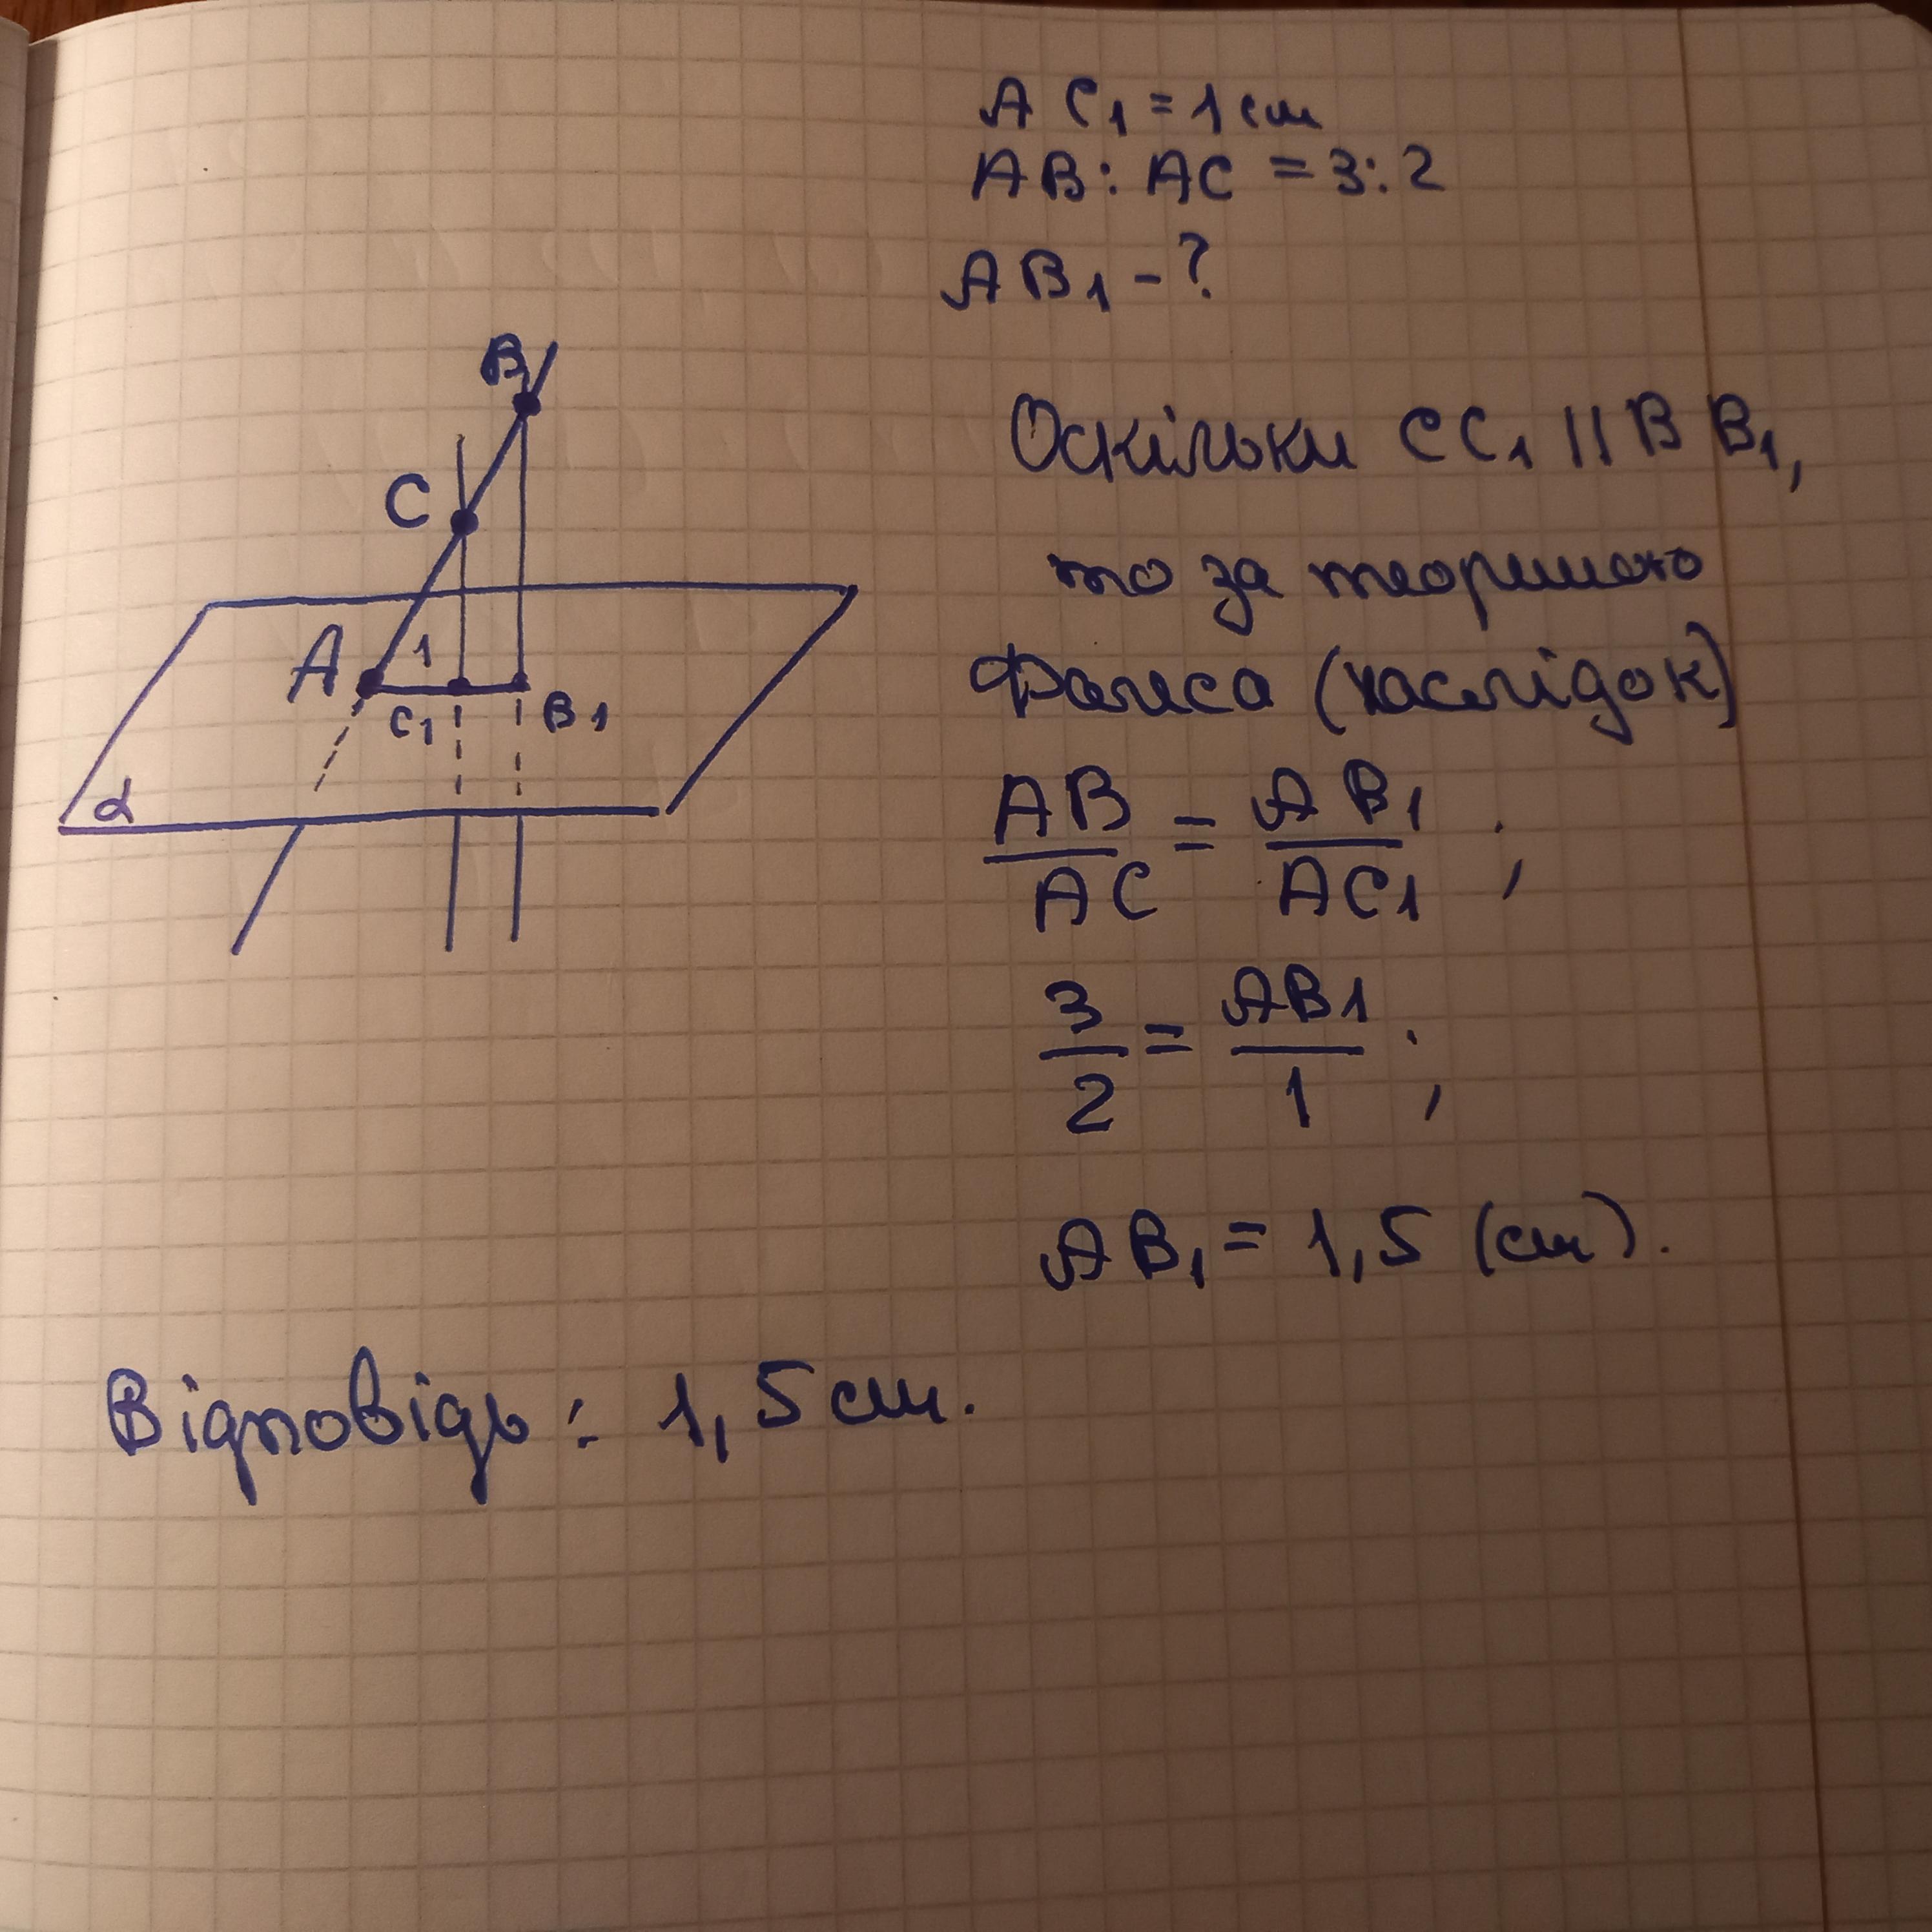 AC₁ = 1 см
AB : AC = 3 : 2
AB₁ - ?
B
C
A
1
C₁
B₁
α
Оскільки CC₁ || BB₁,
то за теоремою
Фалеса (наслідок)
AB/AC = AB₁/AC₁ ;
3/2 = AB1/1 ;
AB₁ = 1,5 (см).
Відповідь: 1,5 см.